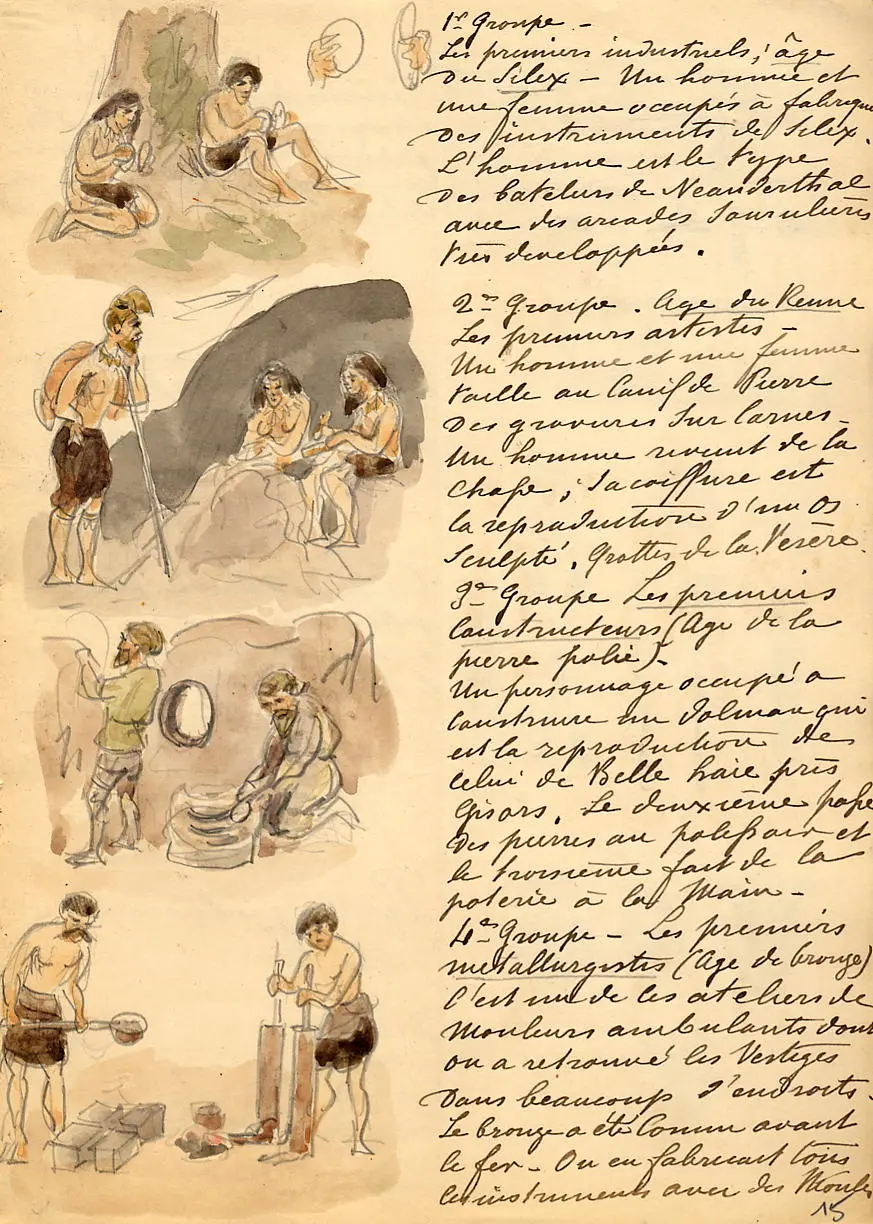 1er Groupe -
Les premiers industriels, âge
du Silex - Un homme et
une femme occupés à fabriquer
des instruments de Silex.
L'homme est le type
des bateleurs de Neanderthal
avec des arcades Sourcilières
très developpées.
2me Groupe. Age du Renne
Les premiers artistes -
Un homme et une femme
taille au Canif de Pierre
des gravures Sur Cornes -
Un homme revient de la
Chasse ; Sa coiffure est
la reproduction d'un Os
Sculpté. Grottes de la Vezère.
3me Groupe Les premiers
Constructeurs (Age de la
pierre polie) -
Un personnage occupé a
Construire un dolman qui
est la reproduction de
Celui de Belle haie près
Gisors. Le deuxième polit
des pierres au polissoir et
le troisième fait de la
poterie à la Main -
4me Groupe - Les premiers
metallurgistes (Age de bronze)
C'est un de ces ateliers de
Mouleurs ambulants dont
on a retrouvé les Vestiges
Dans beaucoup d'endroits.
Le bronze a été Connu avant
le fer - On en fabricait tous
les instruments avec des Moules
15